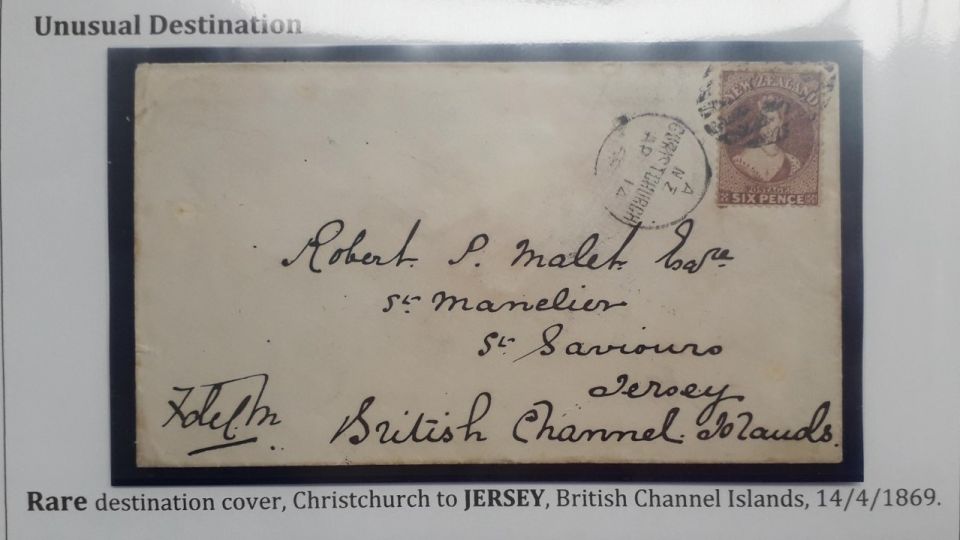 Unusual Destination
NEW ZEALAND
POSTAGE
SIX PENCE
CHRISTCHURCH
A
N Z
AP 14
Robert. P. Malet. Esqre
St Manelier
St Saviours
Jersey
British Channel Islands.
Rare destination cover, Christchurch to JERSEY, British Channel Islands, 14/4/1869.